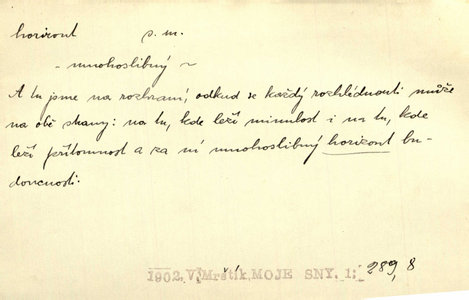 horizont s. m.
- mnohoslibný ~
A tu jsme na rozhraní, odkud se každý rozhlédnouti může
na obě strany: na tu, kde leží minulost i na tu, kde
leží přítomnost a za ní mnohoslibný horizont bu-
doucnosti.
1902, V. Mrštík, MOJE SNY. 1; 289, 8